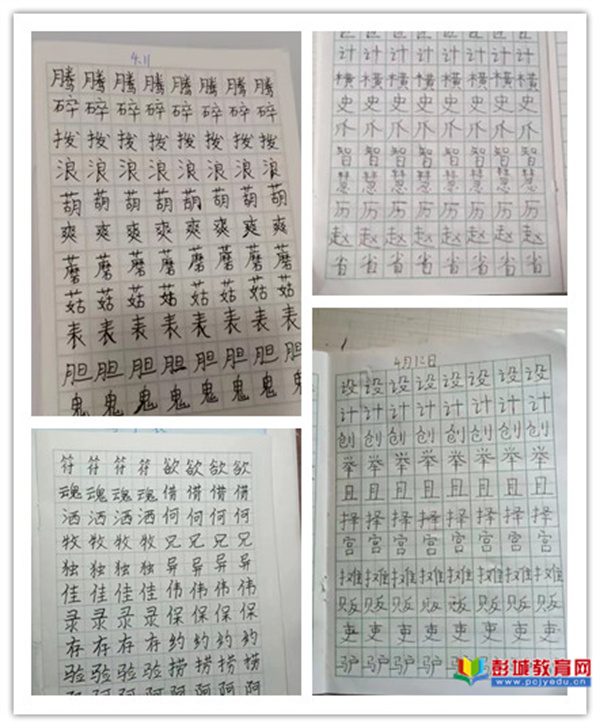 4.11
腾腾腾腾腾腾腾腾
碎碎碎碎碎碎碎碎
拨拨拨拨拨拨拨拨
浪浪浪浪浪浪浪浪
葫葫葫葫葫葫葫葫
爽爽爽爽爽爽爽爽
蘑蘑蘑蘑蘑蘑蘑蘑
菇菇菇菇菇菇菇菇
表表表表表表表表
胆胆胆胆胆胆胆胆
鬼鬼鬼鬼鬼鬼鬼鬼
计计计计计计计计
横横横横横横横横
史史史史史史史史
爪爪爪爪爪爪爪爪
智智智智智智智智
慧慧慧慧慧慧慧慧
历历历历历历历历
赵赵赵赵赵赵赵赵
省省省省省省省省
符符符符欲欲欲欲
魂魂魂魂借借借借
洒洒洒洒何何何何
牧牧牧牧兄兄兄兄
独独独独异异异异
佳佳佳佳伟伟伟伟
录录录录保保保保
存存存存约约约约
验验验验捞捞捞捞
阿阿阿阿
4月12日
设设设设设设设设
计计计计计计计计
创创创创创创创创
举举举举举举举举
且且且且且且且且
择择择择择择择择
宫宫宫宫宫宫宫宫
摊摊摊摊摊摊摊摊
贩贩贩贩贩贩贩贩
吏吏吏吏吏吏吏吏
驴驴驴驴
彭城教育网
www.pcjyedu.cn